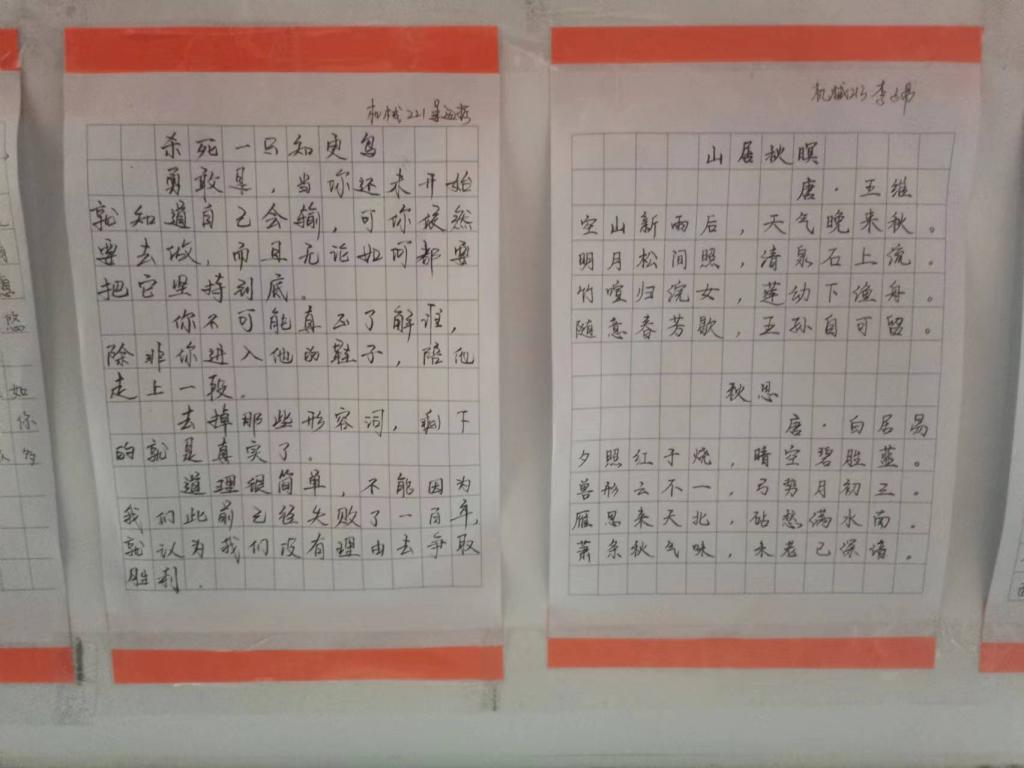 机械221
杀死一只知更鸟
勇敢是，当你还未开始
就知道自己会输，可你依然
要去做，而且无论如何都要
把它坚持到底。
你不可能真正了解谁，
除非你进入他的鞋子，陪他
走上一段。
去掉那些形容词，剩下
的就是真实了。
道理很简单，不能因为
我们此前已经失败了一百年，
就认为我们没有理由去争取
胜利.
机械213 李
山居秋暝
唐·王维
空山新雨后，天气晚来秋。
明月松间照，清泉石上流。
竹喧归浣女，莲动下渔舟。
随意春芳歇，王孙自可留。
秋思
唐·白居易
夕照红于烧，晴空碧胜蓝。
兽形云不一，弓势月初三。
雁思来天北，砧愁满水南。
萧条秋气味，未老已深谙。
如
你